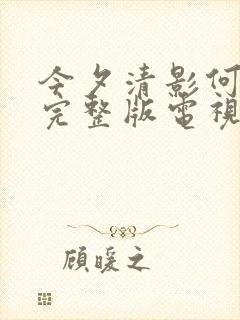 今夕清影何
完整版電視
顧暖之